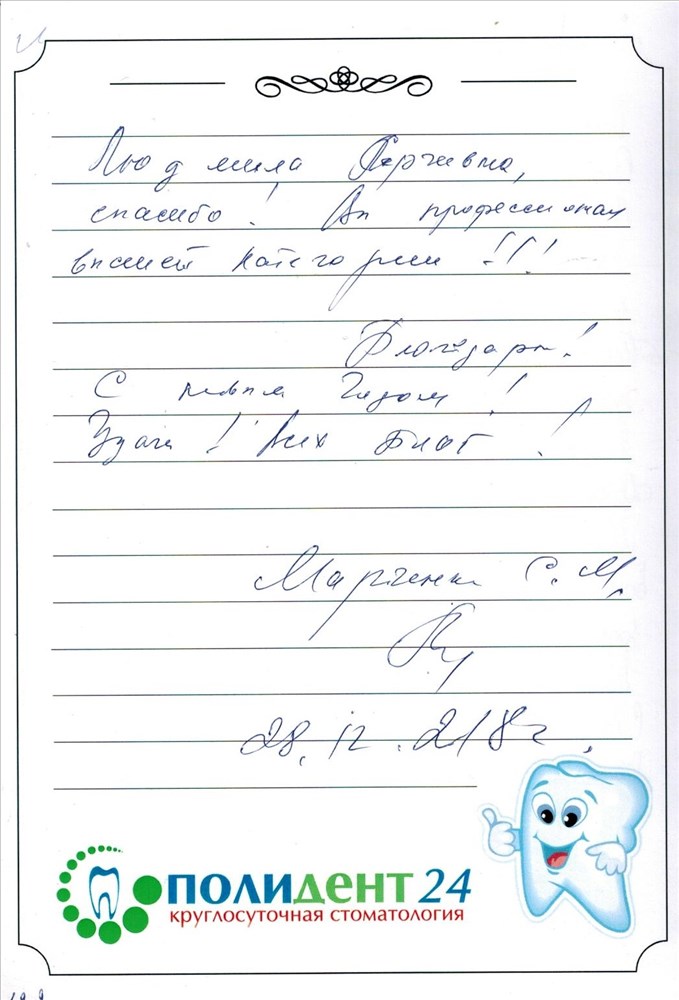 Людмила Сергеевна,
спасибо! Вы профессионал
высшей категории !!!
Благодарю!
С новым Годом!
Удачи! Всех благ!
Марченко С.М.
28.12.218г.
ПОЛИДЕНТ 24
КРУГЛОСУТОЧНАЯ СТОМАТОЛОГИЯ